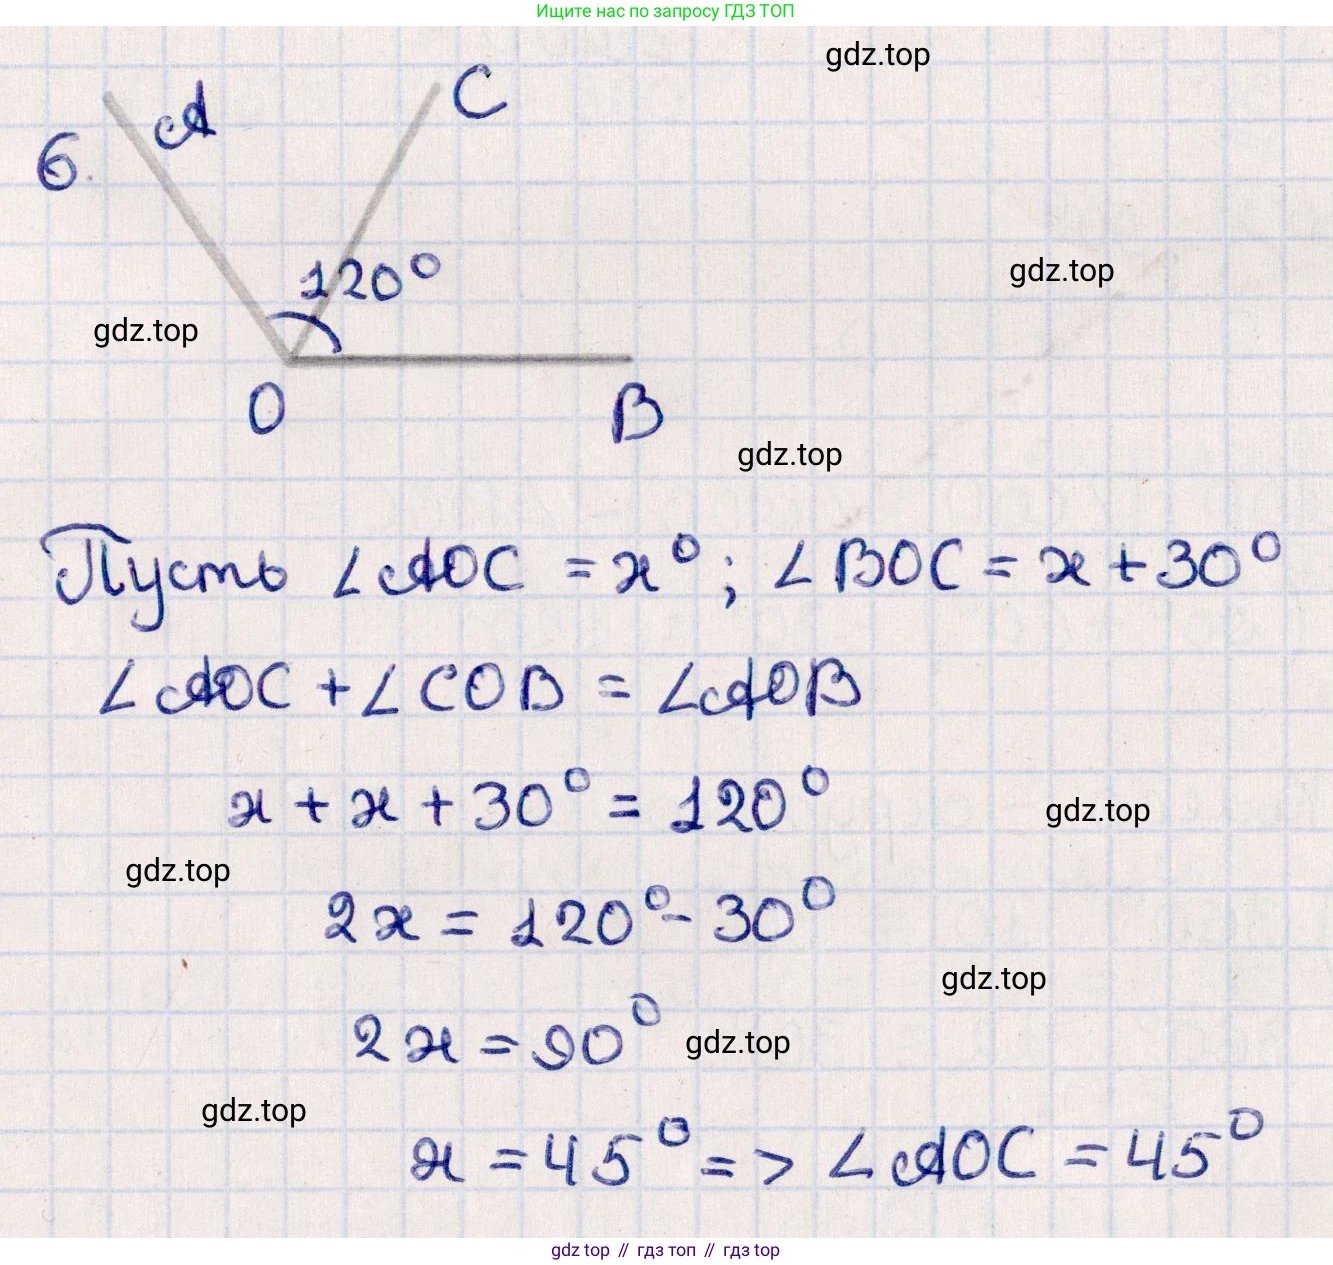 Ищите нас по запросу ГДЗ ТОП
gdz.top
C
A
6.
120°
gdz.top
gdz.top
O
B
gdz.top
Пусть ∠AOC = x°; ∠BOC = x + 30°
∠AOC + ∠COB = ∠AOB
x + x + 30° = 120°
gdz.top
gdz.top
2x = 120° - 30°
gdz.top
2x = 90°
gdz.top
gdz.top
x = 45° => ∠AOC = 45°
gdz top // гдз топ // gdz top